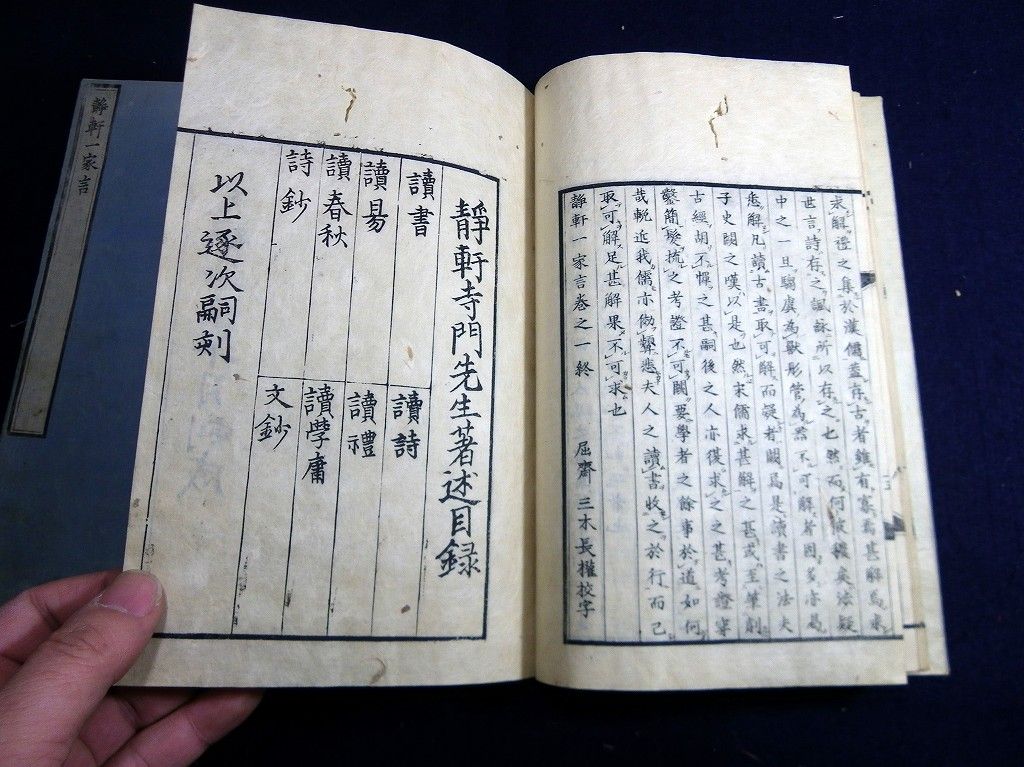 求解證之具於漢儒蓋存古者雖有寡焉甚解爲求
世言詩存之諷詠所以存之也然而何
中之一旦騶虞為獸彤管為器不可解者固多
悉解凡讀古書取可解而疑者闕焉是讀書之法夫
子史闕之嘆以是也然宋儒求甚解之甚或至革創
古經胡不憚之甚嗣後之人亦復求之之甚考證穿
鑿簡髮梳之考證不可闕要學者之餘事於道如何
哉輓近我儒亦倣顰悲夫人之讀書收之於行而已
取可解足甚解果不可求也
靜軒一家言卷之一終 屈齋三木長權挍字
靜軒寺門先生著述目錄
讀書 讀詩
讀易 讀禮
讀春秋 讀學庸
詩鈔 文鈔
以上逐次嗣刻
靜軒一家言